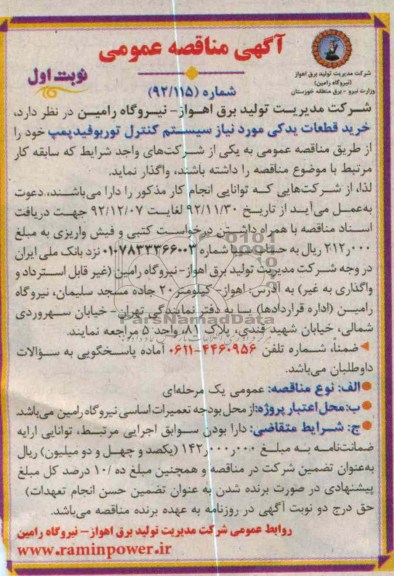 آگهی مناقصه عمومی
شرکت مدیریت تولید برق اهواز
(نیروگاه رامین)
وزارت نیرو - برق منطقه خوزستان
نوبت اول
شماره (۹۲/۱۱۵)
شرکت مدیریت تولید برق اهواز- نیروگاه رامین در نظر دارد،
خرید قطعات یدکی مورد نیاز سیستم کنترل توربوفیدپمپ خود را
از طریق مناقصه عمومی به یکی از شرکت‌های واجد شرایط که سابقه کار
مرتبط با موضوع مناقصه را داشته باشند، واگذار نماید.
لذا، از شرکت‌هایی که توانایی انجام کار مذکور را دارا می‌باشند، دعوت
به‌عمل می‌آید از تاریخ ۹۲/۱۱/۳۰ لغایت ۹۲/۱۲/۰۷ جهت دریافت
اسناد مناقصه با همراه داشتن درخواست کتبی و فیش واریزی به مبلغ
۲۱۲٫۰۰۰ ریال به حساب شماره ۰۱۰۷۸۳۳۳۶۶۰۰۳ نزد بانک ملی ایران
در وجه شرکت مدیریت تولید برق اهواز-نیروگاه رامین (غیر قابل استرداد و
واگذاری به غیر) به آدرس: اهواز- کیلومتر ۲۰ جاده مسجد سلیمان، نیروگاه
رامین (اداره قراردادها) یا به دفتر نمایندگی تهران- خیابان سهروردی
شمالی، خیابان شهید قندی، پلاک ۸۱، واحد ۵ مراجعه نمایند.
ParsNamadData
ضمنا، شماره تلفن ۴۴۶۰۹۵۶-۰۶۱۱ آماده پاسخگویی به سؤالات
داوطلبان می‌باشد.
الف: نوع مناقصه: عمومی یک مرحله‌ای
ب: محل اعتبار پروژه: از محل بودجه تعمیرات اساسی نیروگاه رامین می‌باشد.
ج: شرایط متقاضی: دارا بودن سوابق اجرایی مرتبط، توانایی ارایه
ضمانت‌نامه به مبلغ ۱۴۲٫۰۰۰٫۰۰۰ (یکصد و چهل و دو میلیون) ریال
به‌عنوان تضمین شرکت در مناقصه و همچنین مبلغ ده /۱۰ درصد کل مبلغ
پیشنهادی در صورت برنده شدن به عنوان تضمین حسن انجام تعهدات)
حق درج دو نوبت آگهی در روزنامه به عهده برنده مناقصه می‌باشد.
روابط عمومی شرکت مدیریت تولید برق اهواز- نیروگاه رامین
www.raminpower.ir